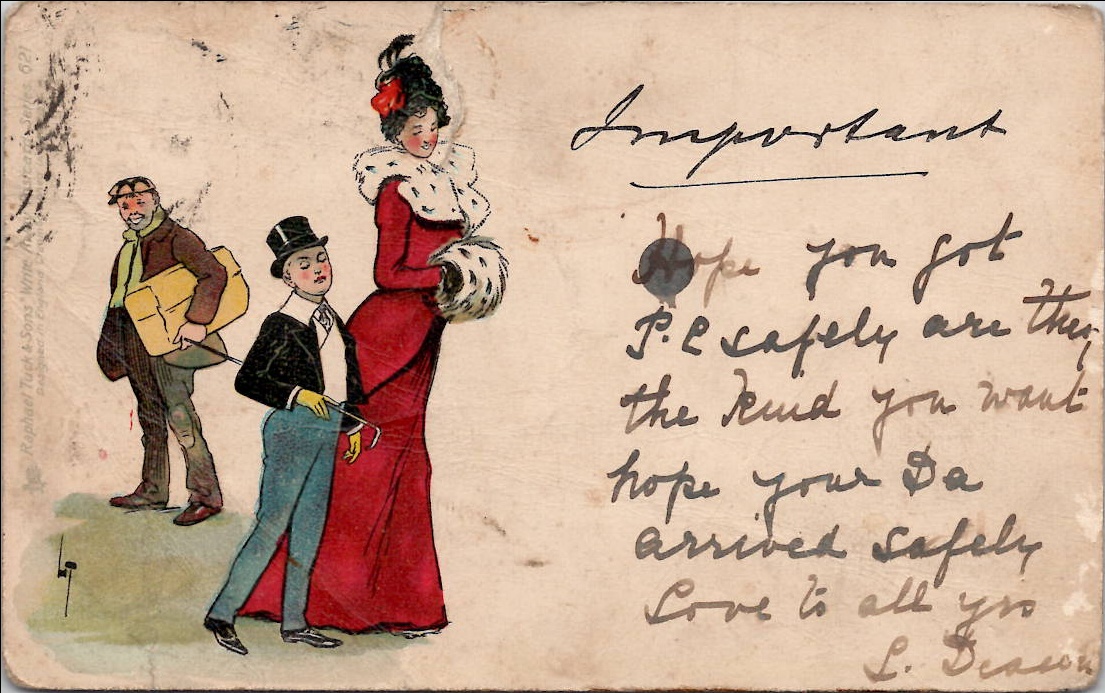 Important
Hope you got
P.C safely are they
the kind you want
hope your Da
arrived safely
Love to all yrs
L.
Raphael Tuck & Sons' "Write Away"
621